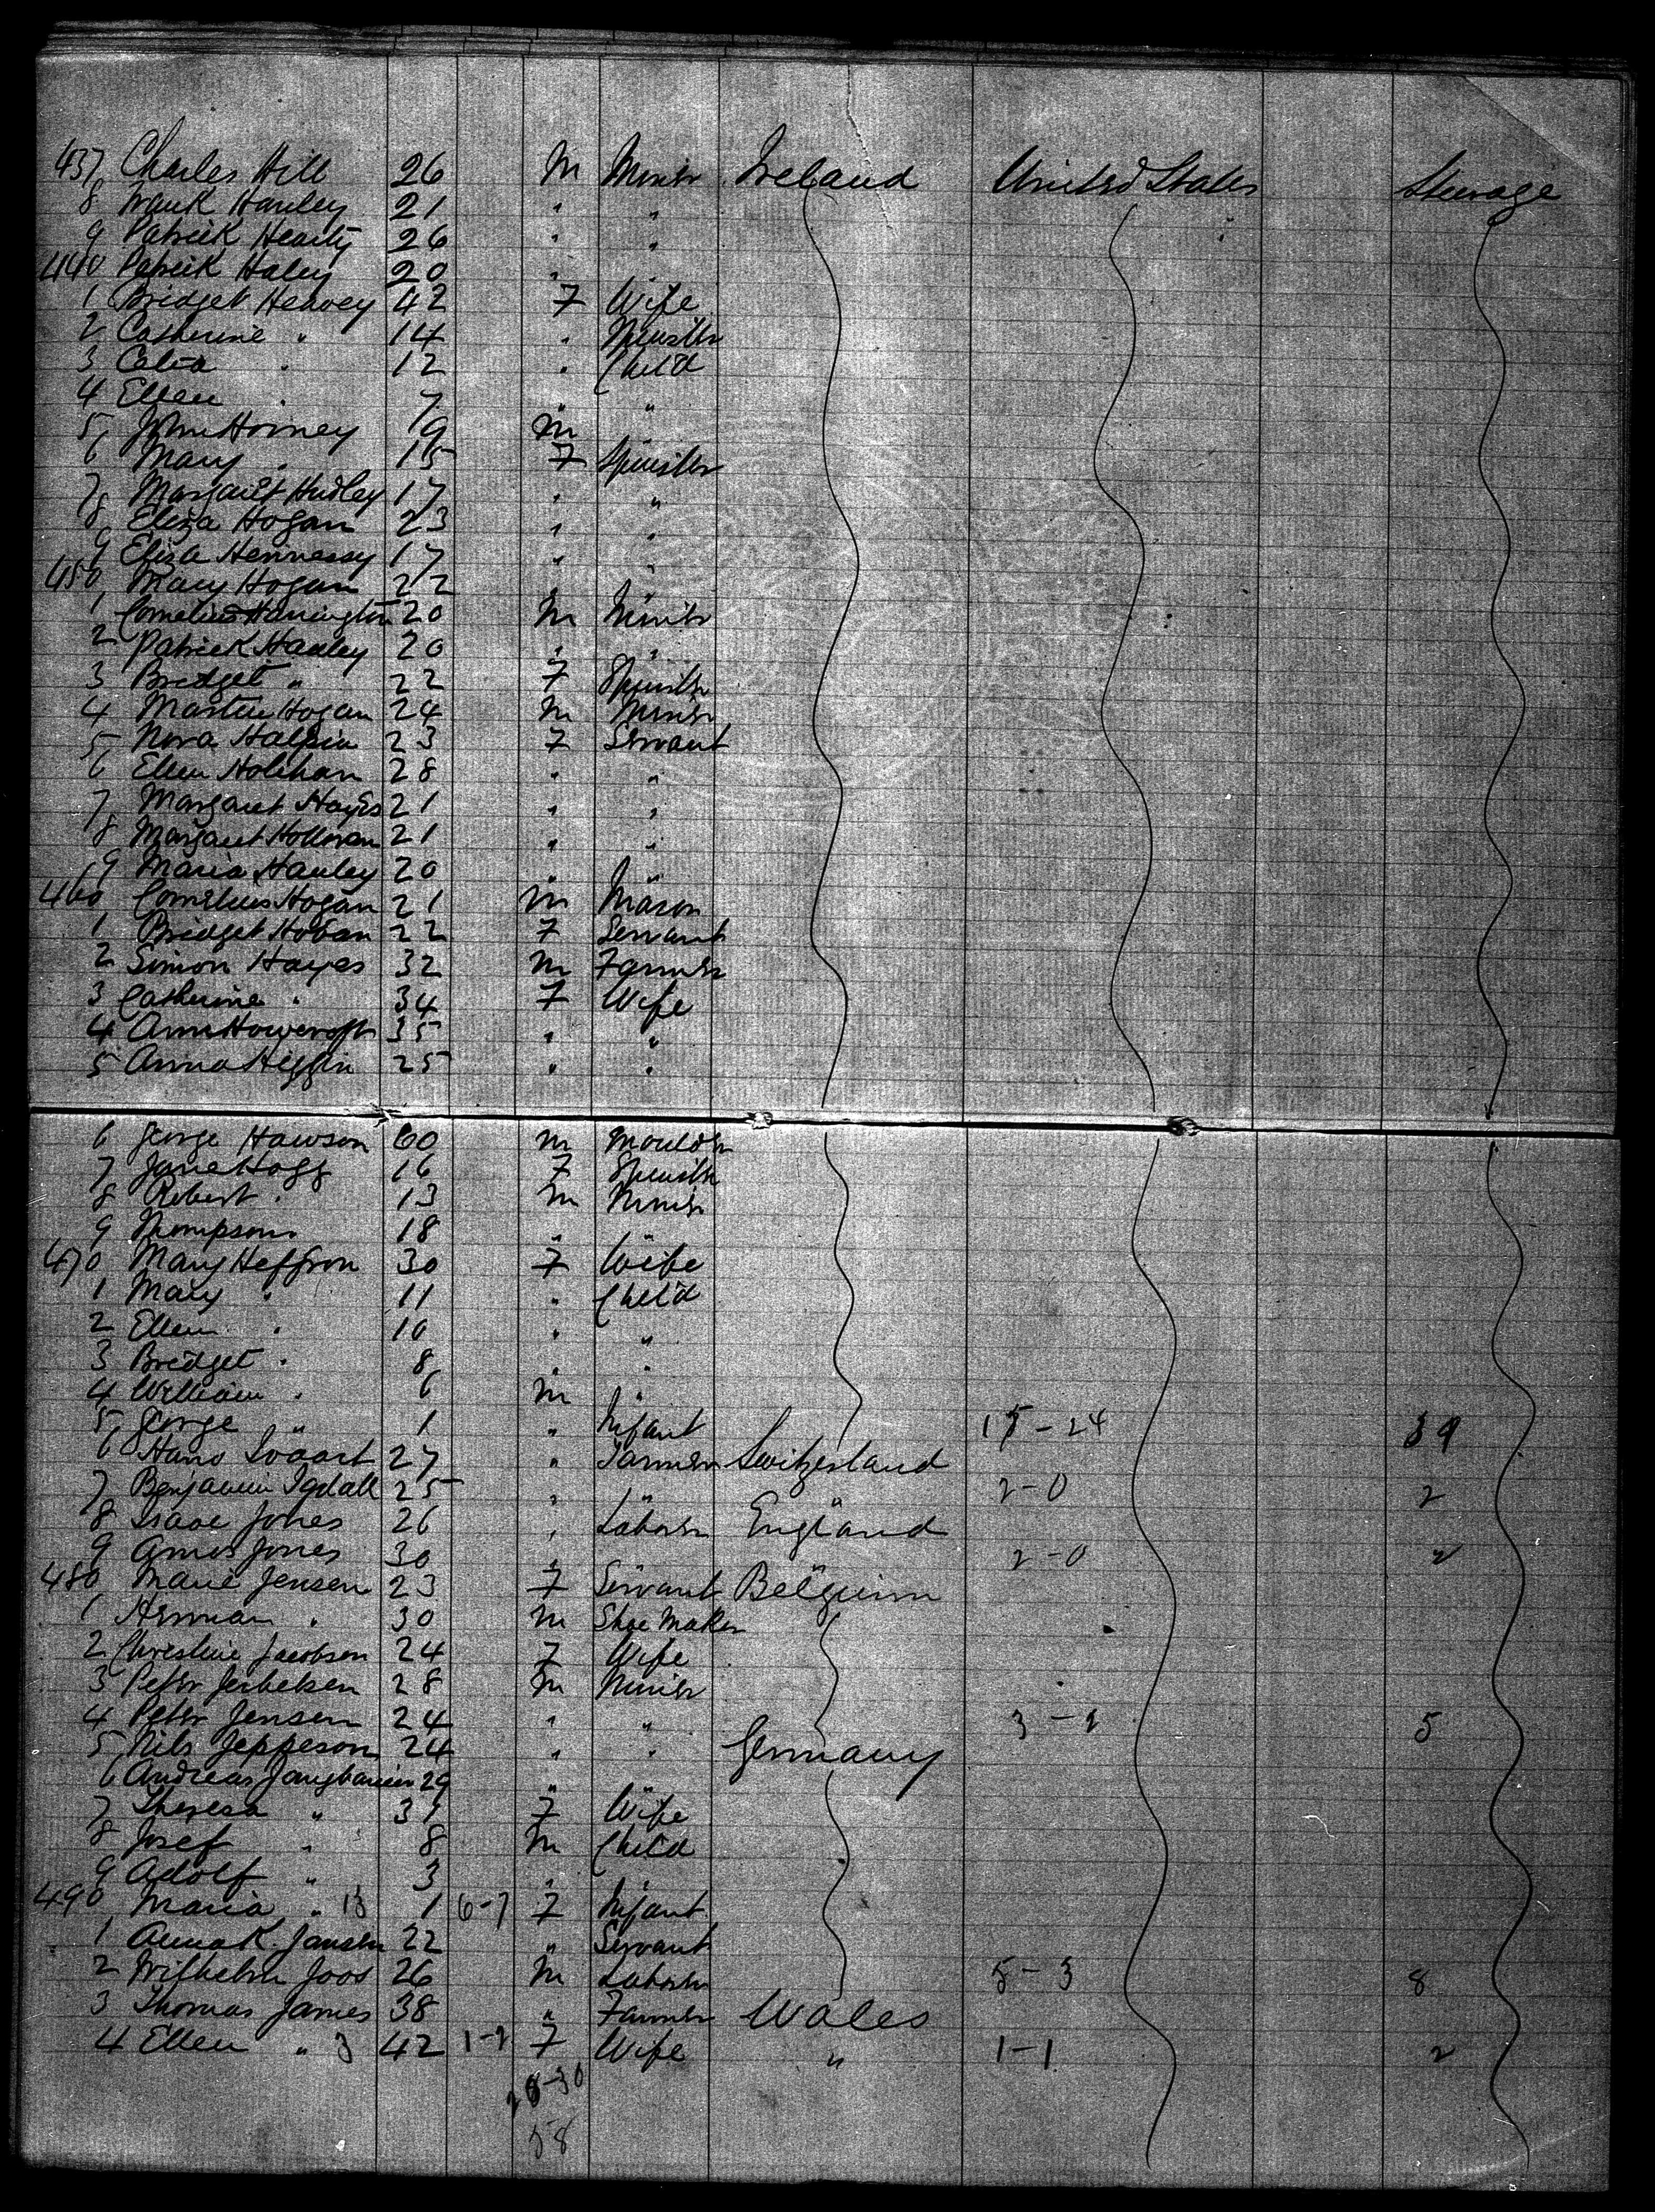 437 Charles Hill 26 M Miner Ireland United States Steerage
8 Frank Hanley 21 " "
9 Patrick Hearty 26 " "
440 Patrick Haley 20 "
1 Bridget Hervey 42 F Wife
2 Catherine " 14 " Spinster
3 Celia " 12 " Child
4 Ellen " 7 " "
5 John Horney 9 M
6 Mary " 15 F Spinster
7 Margaret Hudley 17 " "
8 Eliza Hogan 23 " "
9 Eliza Hennessy 17 " "
450 Mary Hogan 22
1 Cornelius Harrington 20 M Miner
2 Patrick Hanley 20 " "
3 Bridget " 22 F Spinster
4 Martin Hogan 24 M Miner
5 Nora Halpin 23 F Servant
6 Ellen Holehan 28 " "
7 Margaret Hayes 21 " "
8 Margaret Holloran 21 " "
9 Maria Hanley 20
460 Cornelius Hogan 21 M Mason
1 Bridget Hoban 22 F Servant
2 Simon Hayes 32 M Farmer
3 Catherine " 34 F Wife
4 Ann Howcroft 35 " "
5 Anna Higgin 25 " "
6 George Hawson 60 M Moulder
7 Jane Hogg 16 F Spinster
8 Robert " 13 M Miner
9 Thompson 18
470 Mary Heffron 30 F Wife
1 Mary " 11 " Child
2 Ellen " 10 " "
3 Bridget " 8 " "
4 William " 6 M "
5 George " 1 " Infant 15-24 39
6 Hans 27 " Farmer Switzerland
7 Benjamin Igdall 25 " " " 2-0 2
8 Isaac Jones 26 " Laborer England
9 Amos Jones 30 " " " 2-0 2
480 Marie Jensen 23 F Servant Belguim
1 Herman " 30 M Shoe Maker
2 Christine Jacobsen 24 F Wife
3 Peter 28 M Miner
4 Peter Jensen 24 " " 3-2 5
5 Nils Jeppeson 24 " " Germany
6 Andreas Jangbauer 29 " "
7 Theresa " 31 F Wife
8 Josef " 8 M Child
9 Adolf " 3 "
490 Maria " 13 1 6-7 F Infant
1 Anna K. Jansen 22 " Servant
2 Wilhelm Joos 26 M Laborer 5-3 8
3 Thomas James 38 " Farmer Wales
4 Ellen " 3 42 1-2 F Wife " 1-1 2
28-30
58